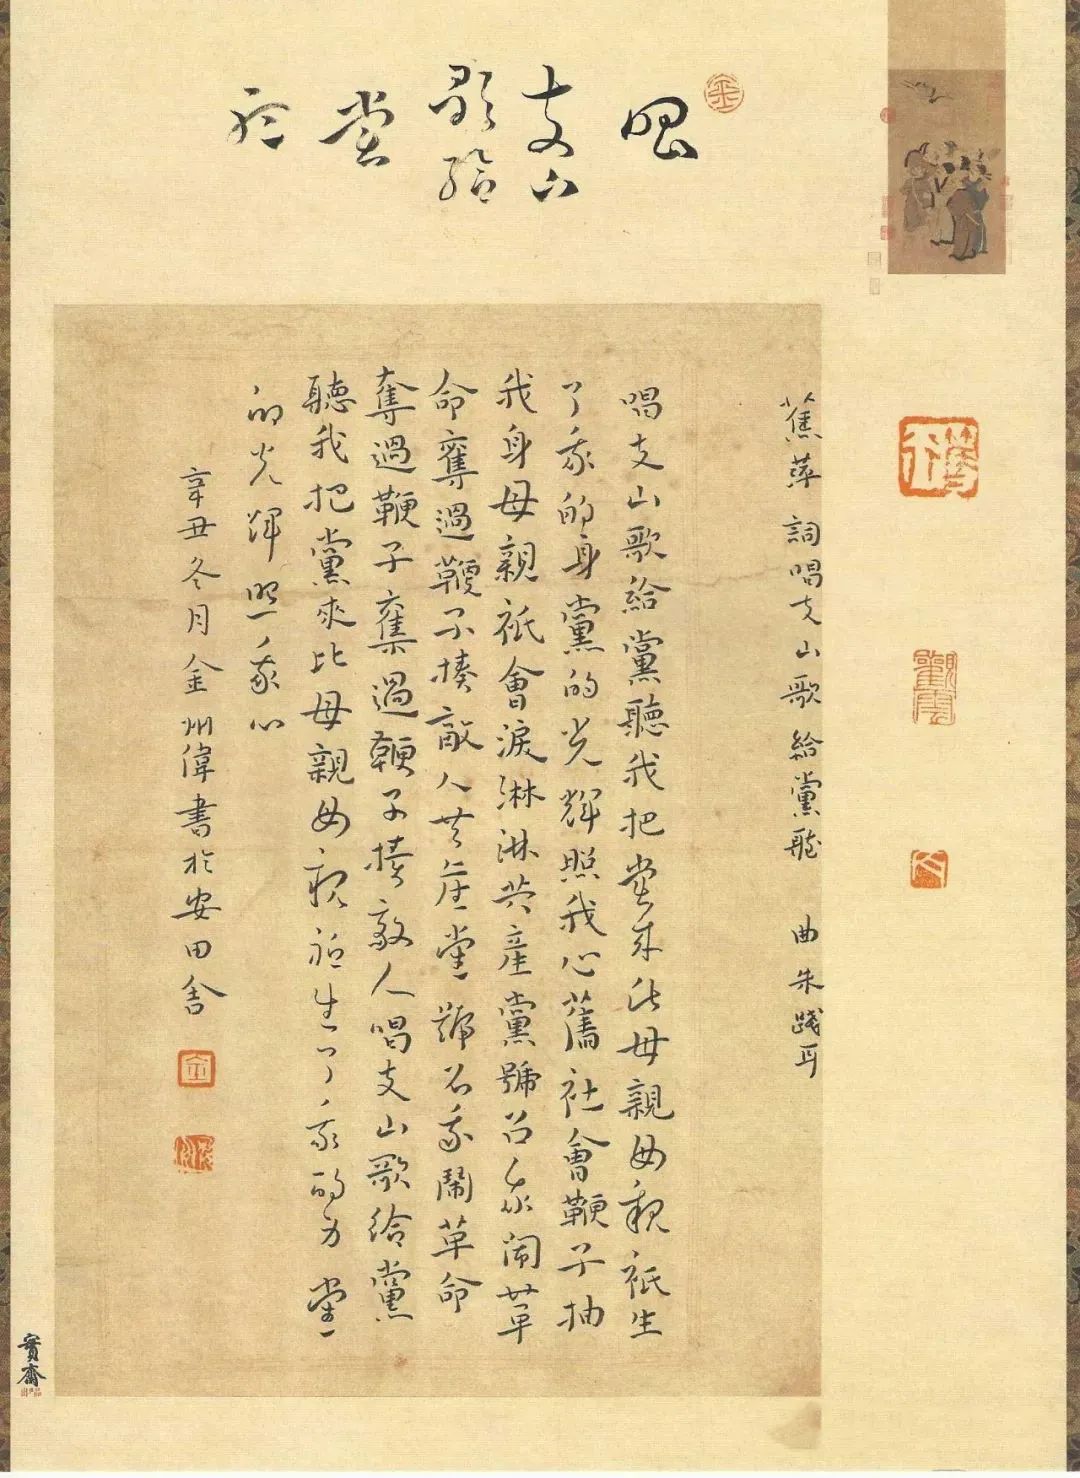 唱支山歌給黨听
蕉萍 詞唱支山歌給黨聽 曲朱踐耳
唱支山歌給黨聽我把黨來比母親母親祇生
了我的身黨的光輝照我心舊社會鞭子抽
我身母親祇會淚淋淋共產黨號召我鬧革
命奪過鞭子揍敵人共產黨號召我鬧革命
奪過鞭子奪過鞭子揍敵人唱支山歌給黨
聽我把黨來比母親母親祇生了我的身黨
的光輝照我心
辛丑冬月金州偉書於安田舍